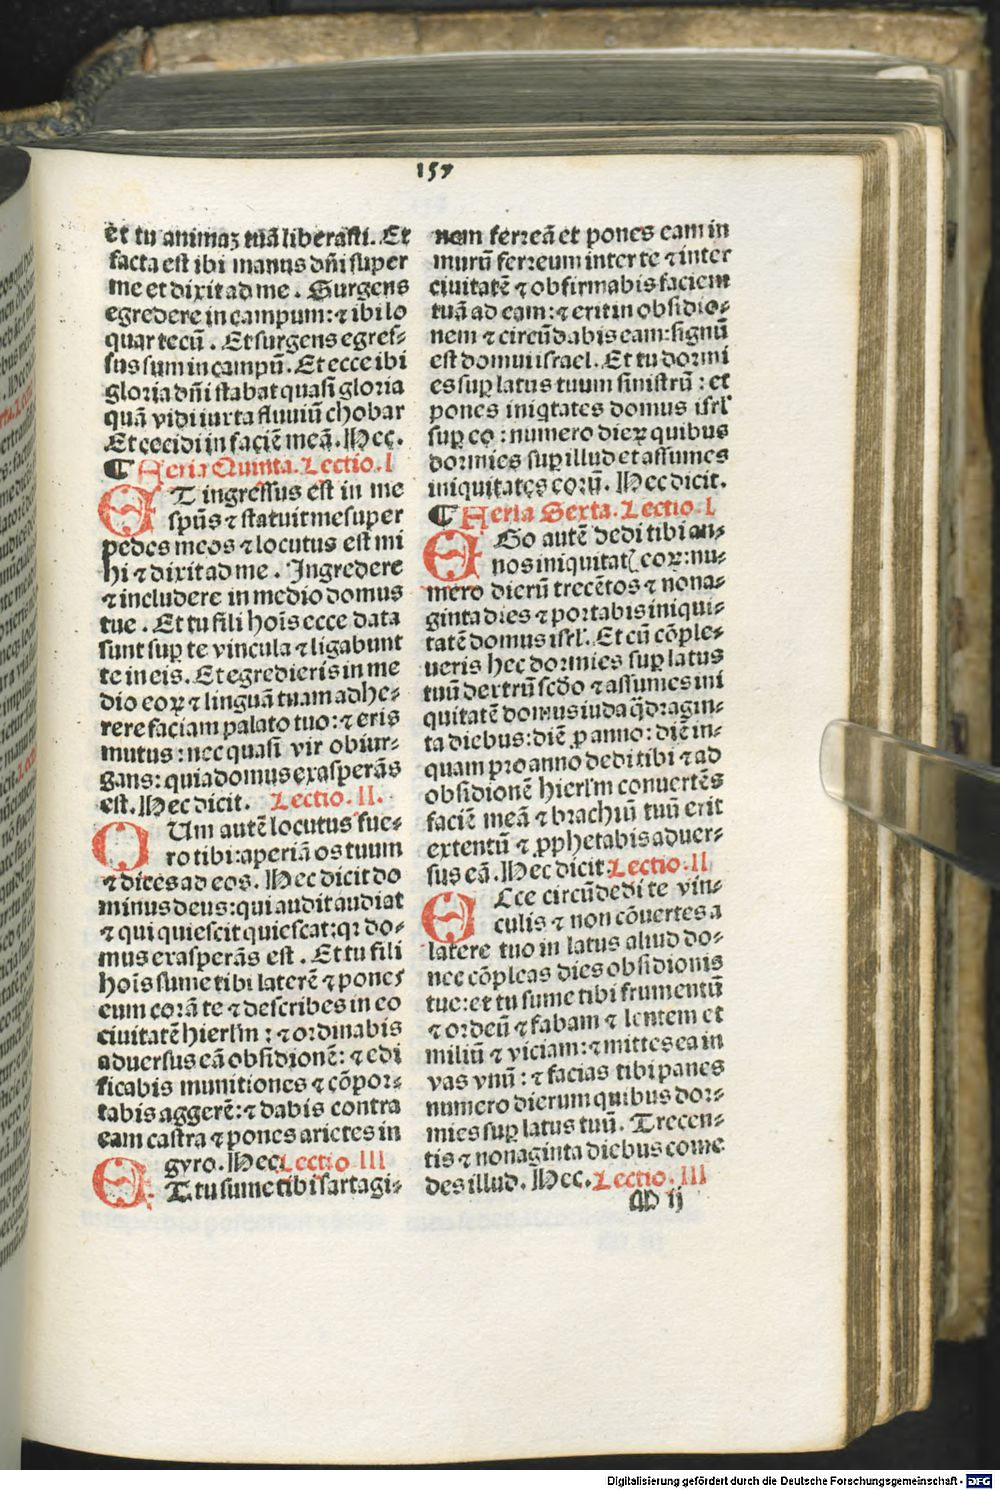 157
et tu animaʒ tuā liberasti. Et
facta est ibi manus dñi super
me et dixit ad me. Surgens
egredere in campum: ⁊ ibi lo
quar tecū. Et surgens egres⸗
sus sum in campū. Et ecce ibi
gloria dñi stabat quasi gloria
quā vidi iuxta fluuiū chobar
Et cecidi in faciē meā. Hec.
¶ Feria Quinta. Lectio. I
ET ingressus est in me
spūs ⁊ statuit me super
pedes meos ⁊ locutus est mi
hi ⁊ dixit ad me. Ingredere
⁊ includere in medio domus
tue. Et tu fili hoīs ecce data
sunt suꝑ te vincula ⁊ ligabunt
te in eis. Et egredieris in me
dio eoꝝ ⁊ linguā tuam adhe⸗
rere faciam palato tuo: ⁊ eris
mutus: nec quasi vir obiur⸗
gans: quia domus exasperās
est. Hec dicit. Lectio. II.
CUm autē locutus fue⸗
ro tibi: aperiā os tuum
⁊ dices ad eos. Hec dicit do
minus deus: qui audit audiat
⁊ qui quiescit quiescat: qꝛ do⸗
mus exasperās est. Et tu fili
hoīs sume tibi laterē ⁊ pones
eum corā te ⁊ describes in eo
ciuitatē hierl'm: ⁊ ordinabis
aduersus eā obsidionē: ⁊ edi
ficabis munitiones ⁊ cōpor⸗
tabis aggerē: ⁊ dabis contra
eam castra ⁊ pones arietes in
gyro. Hec Lectio III
ET tu sume tibi sartagi⸗
nem ferreā et pones eam in
murū ferreum inter te ⁊ inter
ciuitatē ⁊ obfirmabis faciem
tuā ad eam: ⁊ erit in obsidio⸗
nem ⁊ circūdabis eam: signū
est domui israel. Et tu dormi
es suꝑ latus tuum sinistrū: et
pones iniqtates domus isrl'
suꝑ eo: numero dieꝝ quibus
dormies suꝑ illud et assumes
iniquitates eorū. Hec dicit.
¶ Feria Sexta. Lectio. I.
EGo autē dedi tibi an⸗
nos iniquitatꝭ eoꝝ: nu⸗
mero dierū trecētos ⁊ nona⸗
ginta dies ⁊ portabis iniqui⸗
tatē domus isrl'. Et cū cōple⸗
ueris hec dormies suꝑ latus
tuū dextrū scdo ⁊ assumes ini
quitatē domus iuda q̄dragin⸗
ta diebus: diē ꝓ anno: diē in⸗
quam pro anno dedi tibi ⁊ ad
obsidionē hierl'm conuertēs
faciē meā ⁊ brachiū tuū erit
extentū ⁊ ꝓphetabis aduer⸗
sus eā. Hec dicit Lectio. II
ECce circūdedi te vin⸗
culis ⁊ non cōuertes a
latere tuo in latus aliud do⸗
nec cōpleas dies obsidionis
tue: et tu sume tibi frumentū
⁊ ordeū ⁊ fabam ⁊ lentem et
miliū ⁊ viciam: ⁊ mittes ea in
vas vnū: ⁊ facias tibi panes
numero dierum quibus dor⸗
mies suꝑ latus tuū. Trecen⸗
tis ⁊ nonaginta diebus come
des illud. Hec. Lectio. III
M ij
Digitalisierung gefördert durch die Deutsche Forschungsgemeinschaft - DFG